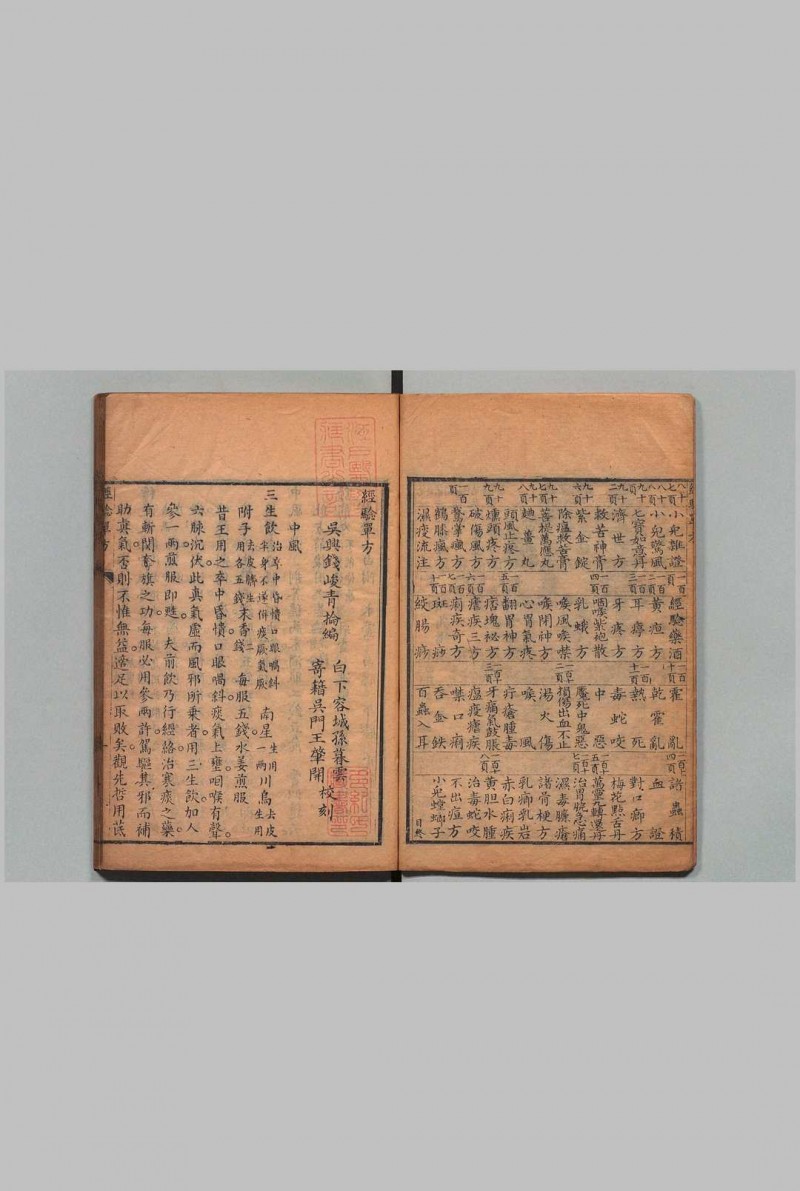 八十七頁 小兒雜證 一百頁 經驗藥酒 一百十頁 霍亂 諸蟲積
小兒驚風 黃疸方 乾霍亂 血證
七寶如意丹 耳痔方 熱死 對口癤方
濟世方 牙疼方 毒蛇咬 梅花點舌丹
救苦神膏 咽喉紫袍散 中惡 萬靈九轉還丹
紫金錠 乳蛾方 魘死中鬼惡 治胃脘急痛
除瘟救苦膏 喉風喉禁 損傷出血不止 濕毒臁瘡
善檖萬應丸 喉閉神方 湯火傷 諸骨梗方
鹽薑丸 心胃氣疼 喉風 乳癤乳岩
頭風止疼方 翻胃神方 疔瘡腫毒 赤白痢疾
燻頭疼方 痞塊秘方 牙痛氣鼓脹 黃胆水腫
破傷風方 瘧疾三方 瘟疫瘧疾 治毒蛇咬
鵞掌瘋方 痢疾奇方 禁口痢 不出痘方
鶴膝瘋方 斑痧 吞金鉄 小兒螳螂子
濕痰流注 絞腸痧 百蟲入耳 目終
經驗單方
吳興錢峻青掄編
白下容城孫暮雲
寄籍吳門王肇開 校刻
中風
三生飲 治卒中昏憒口眼喎斜半身不遂併痰厥氣厥 南星一兩生用 川烏去皮生用
附子去皮臍生用各五錢 木香二錢 每服五錢水姜煎服
昔王用之卒中昏憒口眼喎斜痰氣上壅咽喉有聲
六脉沉伏此真氣虛而風邪所乗者用三生飲加人
參一兩煎服即甦 夫前飲乃行經絡治寒痰之藥
有斬関奪旗之功每服必用參兩許駕驅其邪而補
助真氣否則不惟無益適足以取敗矣觀先哲用芪
經驗單方